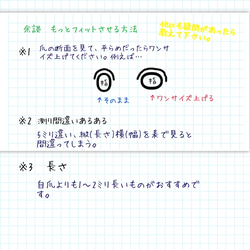 余談 もっとフィットさせる方法
他にも疑問があったら
教えて下さい。
※1 爪の断面を見て、平らめだったらワンサ
イズ上げてください。例えば…
幅 幅
↑そのまま ↑ワンサイズ上げる
※2 測り間違いあるある
5ミリ違い、縦(長さ)横(幅)を素で見ると
間違ってしまう。
※3 長さ
自爪よりも1〜2ミリ長いものがおすすめで
す。